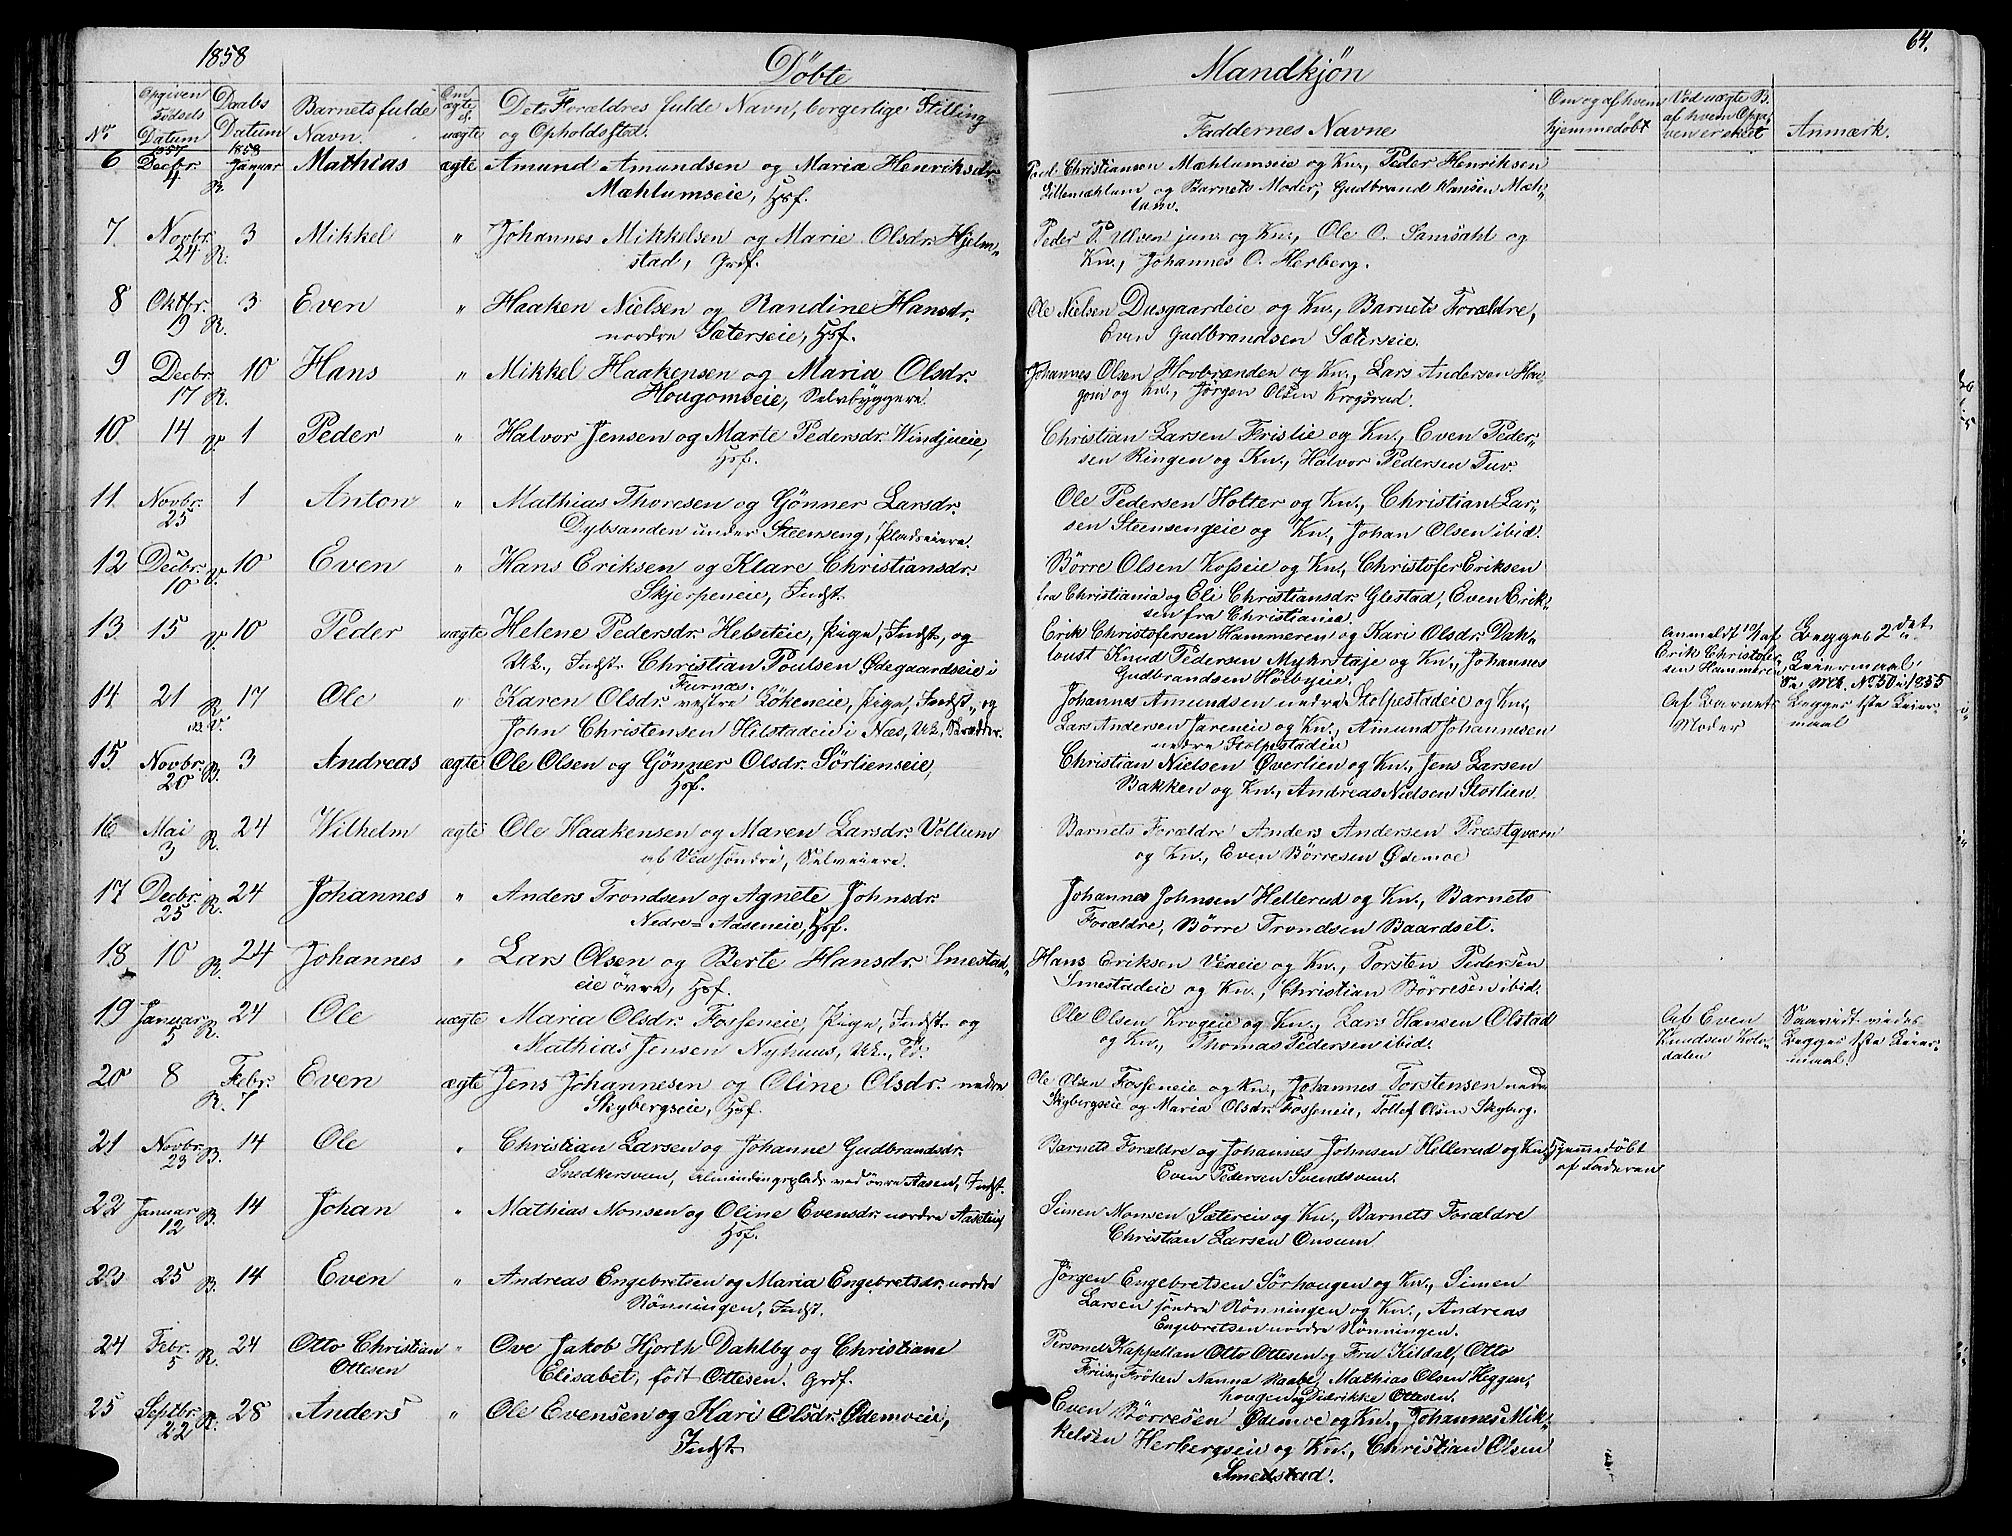 1858
Døbte
Mandkjøn
64.
No
Opgiven Fødsels Datum
Daabs Datum
Barnets fulde Navn.
Om ægte el. uægte
Dets Forældres fulde Navn, borgerlige Stilling og Opholdssted.
Faddernes Navne
Om og af hvem hjemmedøbt
Ved uægte B. af hvem Opgiven er skeet
Anmærk.
6 1857 Decbr. 4 R. 1858 Januar 1 Mathias ægte Amund Amundsen og Maria Henriksdr.
Mæhlumseie, Hsf.
Christiansen Mæhlumseie og Kn., Peder Henriksen
Lillemæhlum og Barnets Moder, Gudbrand Hansen Mæh-
lum.
7. Novbr. 24 R. 3 Mikkel " Johannes Mikkelsen og Marie Olsdr. Hjelm-
stad, Grdf.
Peder P. Ulven jun. og Kn., Ole O. Samsahl og
Kn., Johannes O. Herberg.
8 Oktbr. 19 R. 3 Even " Haaken Nielsen og Randine Hansdr.
nordre Sæterseie, Hsf.
Ole Nielsen Dusgaardeie og Kn., Barnets Forældre,
Even Gudbrandsen Sæterseie.
9 Decbr. 17 R. 10 Hans " Mikkel Haakensen og Maria Olsdr.
Hougomseie, Selvbyggere.
Johannes Olsen Hovbrænden og Kn., Lars Andersen Hou-
gom og Kn., Jørgen Olsen Krogsrud.
10 14 V. 1 Peder " Halvor Jensen og Marte Pedersdr. Windjueie,
Hsf.
Christian Larsen Frislie og Kn., Even Peder-
sen Ringen og Kn., Halvor Pedersen Tuv.
11. Novbr. 25 1 Anton " Mathias Thoresen og Gønner Larsdr.
Dybsanden under Steenseng, Pladseiere.
Ole Pedersen Holter og Kn., Christian Lar-
sen Steensengeie og Kn., Johan Olsen ibid.
12 Decbr. 10 V. 10 Even " Hans Eriksen og Klare Christiansdr.
Skjerpeneie, Indst.
Børre Olsen Kosseie og Kn., Christofer Eriksen
fra Christiania og Eli Christiansdr. Glestad, Even Erik-
sen fra Christiania.
13. 15 V. 10 Peder uægte Helene Pedersdr. Helseteie, Pige, Indst., og
Uk., Indst. Christian Poulsen Ødegaardseie i
Furnæs.
Erik Christofersen Hammeren og Kari Olsdr. Dah-
Knud Pedersen Myhrstaje og Kn., Johannes
Gudbrandsen Holbyeie.
Anmeldt af Erik Christofersen Hammeren
Begges 2det Leiermaal. No 50 i 1855
14. 21 R. 17 Ole " Karen Olsdr. vestre Gökeneie, Pige, Indst., og
John Christensen Hilstadeie i Næs, Uk.,
Johannes Amundsen nedre Stolpestadeie og Kn.,
Lars Andersen Jareneie og Kn., Amund Johannesen
nedre Stolpestadeie
Af Barnets Moder
Begges 1ste Leiermaal
15. Novbr. 20 B. 3 Andreas ægte Ole Olsen og Gønner Olsdr. Sørlienseie,
Hsf.
Christian Nielsen Øverlien og Kn., Jens Larsen
Bakken og Kn., Andreas Nielsen Storlien.
16 Mai 3 R. 24 Wilhelm ægte Ole Haakensen og Maren Larsdr. Vollum
søndre, Selveiere.
Barnets Forældre Anders Andersen Præstqværn
og Kn., Even Børresen Ødemoe
17 Decbr. 25 R. 24 Johannes " Anders Trondsen og Agnete Johnsdr.
Nedre-Aaseneie, Hsf.
Johannes Johnsen Hellerud og Kn., Barnets
Forældre, Børre Trondsen Baardset.
18 10 R. 24 Johannes " Lars Olsen og Berte Hansdr. Smestad-
eie øvre, Hsf.
Hans Eriksen Veaeie og Kn., Torsten Pedersen
Smestadeie og Kn., Christian Børresen ibid.
19 Januar 5 R. 24 Ole uægte Maria Olsdr. Fosseneie, Pige, Indst. og
Mathias Jensen Nyhuus, Uk.,
Ole Olsen Krogeie og Kn., Lars Hansen Olstad
og Kn., Thomas Pedersen ibid.
Af Even Knudsen Kolodalen
Saavidt vides Begges 1ste Leiermaal.
20 8 R. Febr. 7 Even ægte Jens Johannesen og Oline Olsdr. nedre
Skybergseie, Hsf.
Ole Olsen Fosseneie og Kn., Johannes Torstensen nedre
Skybergseie og Maria Olsdr. Fosseneie, Tollef Olsen Skyberg.
21 Novbr. 23 B. 14 Ole " Christian Larsen og Johanne Gudbrandsdr.
Snedkersveen, Almindingsplads ved øvre Aasen, Indst.
Barnets Forældre og Johannes Johnsen Hellerud og Kn.,
Even Pedersen Svendsveen.
Hjemmedøbt af Faderen
22 Januar 12 B. 14 Johan " Mathias Monsen og Oline Evensdr. nordre Aaseeie,
Hsf.
Simen Monsen Sætereie og Kn., Barnets Forældre
Christian Larsen Onsum
23 25 B. 14 Even " Andreas Engebretsen og Maria Engebretsdr. nordre
Rønningen, Indst.
Jørgen Engebretsen Sørhaugen og Kn., Simen
Larsen søndre Rønningen og Kn., Andreas
Engebretsen nordre Rønningen.
24 Febr. 5 R. 24 Otto Christian Ottesen " Ove Jakob Hjorth Dahlby og Christiane
Elisabet, født Ottesen. Grdf.
Personel Kappellan Otto Ottesen og Fru Kildal, Otto
Friis, Frøken Nanna Raabe, Mathias Olsen Heggen-
hougen og Didrikke Ottesen.
25 Septbr. 22 R. 28 Anders " Ole Evensen og Kari Olsdr. Ødemoeie,
Indst
Even Børresen Ødemoe og Kn., Johannes Mik-
kelsen Herbergseie og Kn., Christian Olsen
Smedstad.